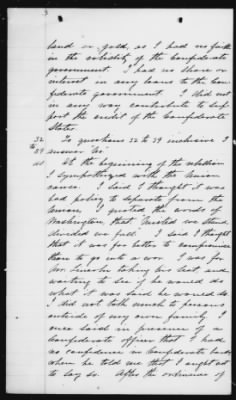 3
bond or gold, as I had no faith
in the solidity of the Confederate
government. I had no share or
interest in any loans to the Con-
federate government. I did not
in any way contribute to sup-
port the credit of the Confederate
States.
32 To questions 32 to 39 inclusive I
to
39 answer "No".
40 At the beginning of the rebellion
I sympathized with the Union
cause. I said I thought it was
bad policy to separate from the
Union, I quoted the words of
Washington, that "United we stand,
divided we fall. I said I thought
that it was far better to compromise
than to go into a war. I was for
Mr. Lincoln taking his seat, and
waiting to see if he would do
what it was said he would do.
I did not talk much to persons
outside of my own family. I
once said in presence of a
Confederate officer that I had
no confidence in Confederate
when he told me that I ought not
to say so. After the ordinance of